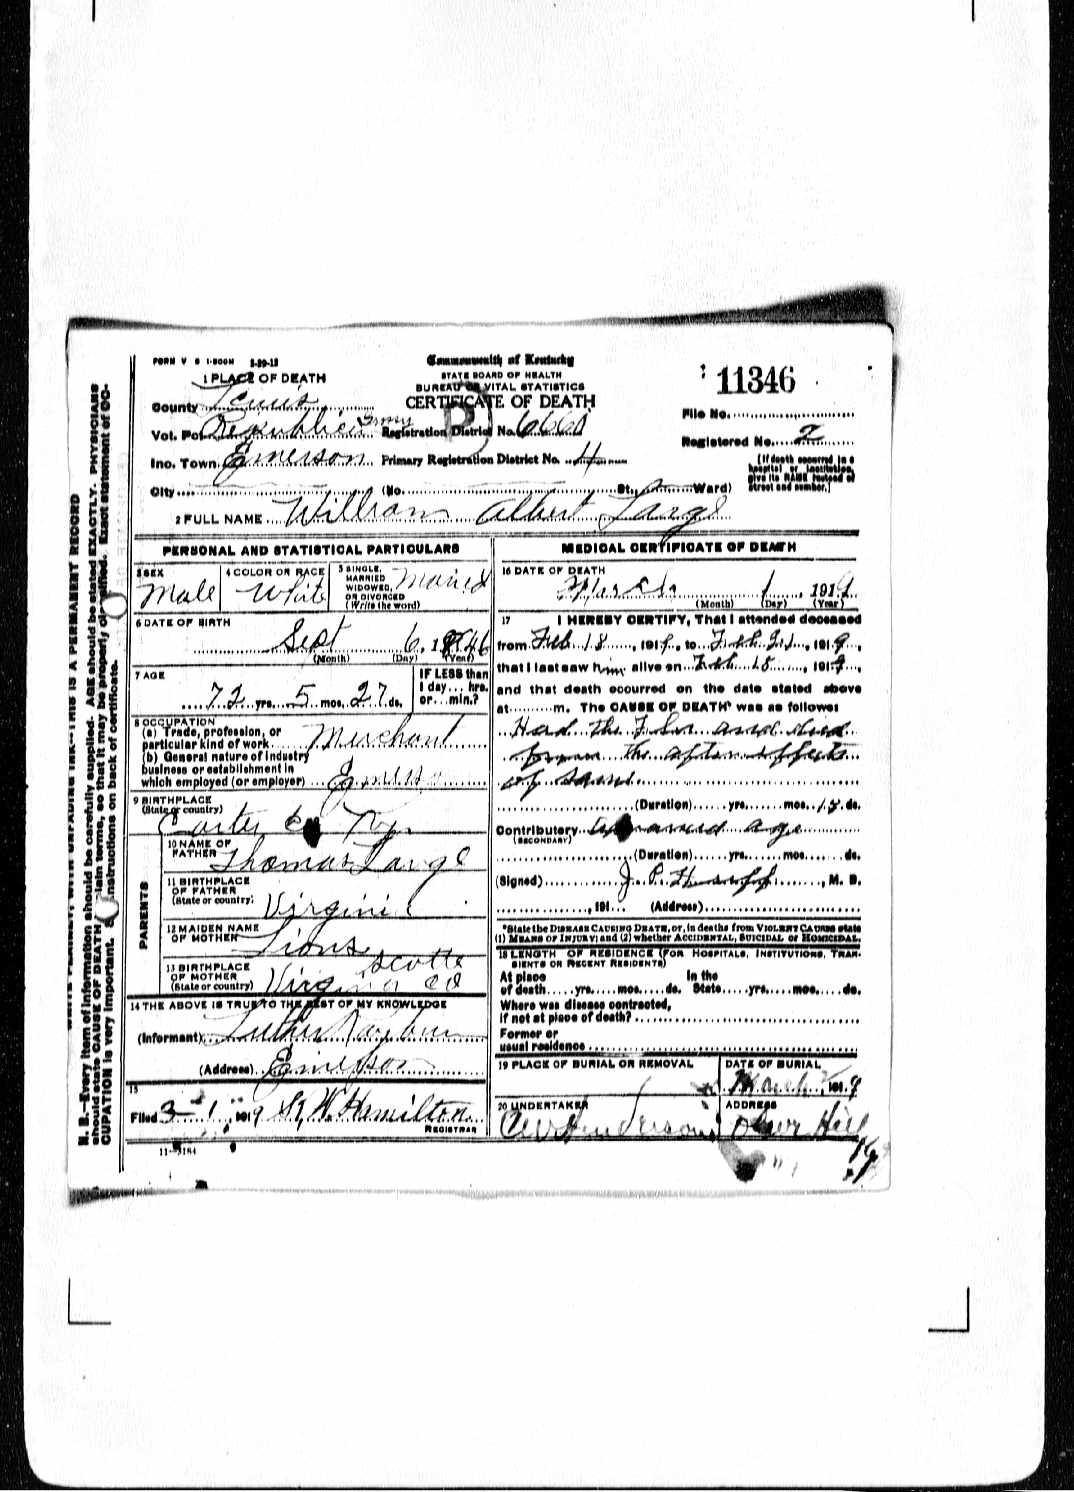 FORM V S 1-500M 8-29-18
Commonwealth of Kentucky
STATE BOARD OF HEALTH
BUREAU OF VITAL STATISTICS
CERTIFICATE OF DEATH
11346
1 PLACE OF DEATH
County Lewis
Vot. Pct Republican Registration District No. 6660
File No.
Registered No. 2
Inc. Town. Emerson Primary Registration District No. 4
City (No. St., Ward)
(If death occurred in a hospital or institution, give its NAME instead of street and number.)
2 FULL NAME William Albert Large
PERSONAL AND STATISTICAL PARTICULARS
3 SEX
Male
4 COLOR OR RACE
White
5 SINGLE, MARRIED WIDOWED, OR DIVORCED (Write the word)
Maried
6 DATE OF BIRTH
Sept 6, 1846
(Month) (Day) (Year)
7 AGE
72 yrs. 5 mos. 27 ds.
IF LESS than 1 day... hrs. or... min.?
8 OCCUPATION
(a) Trade, profession, or particular kind of work Merchant
(b) General nature of industry business or establishment in which employed (or employer)
9 BIRTHPLACE (State or country)
Carter Co Ky
PARENTS
10 NAME OF FATHER Thomas Large
11 BIRTHPLACE OF FATHER (State or country) Virginia
12 MAIDEN NAME OF MOTHER Lions
13 BIRTHPLACE OF MOTHER (State or country) Virginia Scotts Co
14 THE ABOVE IS TRUE TO THE BEST OF MY KNOWLEDGE
(Informant) Luther Rayburn
(Address) Emerson
15
Filed 3-1, 1919 S. W. Hamilton
REGISTRAR
11-3184
MEDICAL CERTIFICATE OF DEATH
16 DATE OF DEATH
March 1, 1919
(Month) (Day) (Year)
17 I HEREBY CERTIFY, That I attended deceased
from Feb 18, 1919, to Feb 21, 1919,
that I last saw him alive on Feb 18, 1919
and that death occurred on the date stated above
at m. The CAUSE OF DEATH* was as follows:
Had the Flu and died
from the after effects
of same
(Duration) yrs. mos. 18 ds.
Contributory advanced age
(SECONDARY)
(Duration) yrs. mos. ds.
(Signed) J. P. M. D.
, 191 (Address)
*State the DISEASE CAUSING DEATH, or, in deaths from VIOLENT CAUSES state
(1) MEANS OF INJURY; and (2) whether ACCIDENTAL, SUICIDAL or HOMICIDAL.
18 LENGTH OF RESIDENCE (FOR HOSPITALS, INSTITUTIONS, TRANSIENTS OR RECENT RESIDENTS)
At place of death yrs. mos. ds. In the State yrs. mos. ds.
Where was disease contracted,
if not at place of death?
Former or usual residence
19 PLACE OF BURIAL OR REMOVAL
DATE OF BURIAL
March 1919
20 UNDERTAKER
Henderson
ADDRESS
Olive Hill Ky
N. B.—Every item of information should be carefully supplied. AGE should be stated EXACTLY. PHYSICIANS
should state CAUSE OF DEATH in plain terms, so that it may be properly classified. Exact statement of OC-
CUPATION is very important. See instructions on back of certificate.